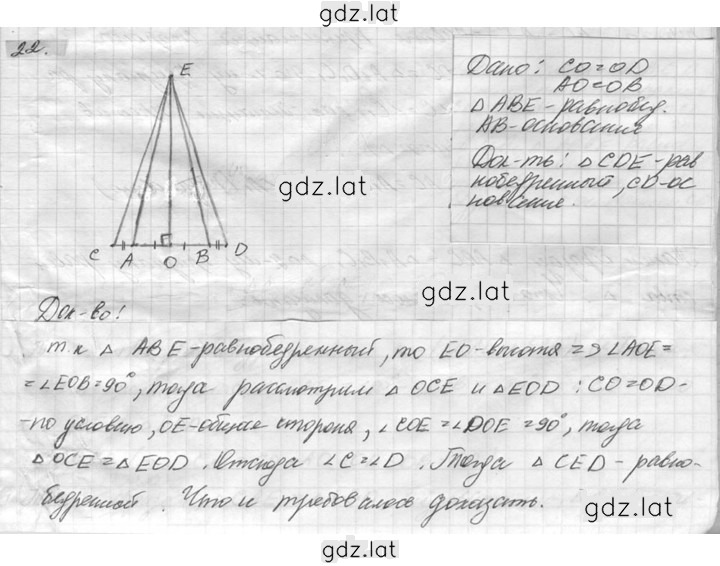 gdz.lat
22.
E
C A O B D
Дано: CO=OD
AO=OB
△ABE-равнобед.
AB-основание
Док-ть: △CDE-рав
нобедренный, CD-ос
нование.
gdz.lat
gdz.lat
Док-во!
т.к △ ABE-равнобедренный, то EO-высота => ∠AOE=
=∠EOB=90°, тогда рассмотрим △ OCE и △EOD : CO=OD-
-по условию, OE-общая сторона, ∠COE=∠DOE=90°, тогда
△OCE=△EOD. Отсюда ∠C=∠D. Тогда △CED-равно-
бедренной. Что и требовалось доказать.
gdz.lat
gdz.lat